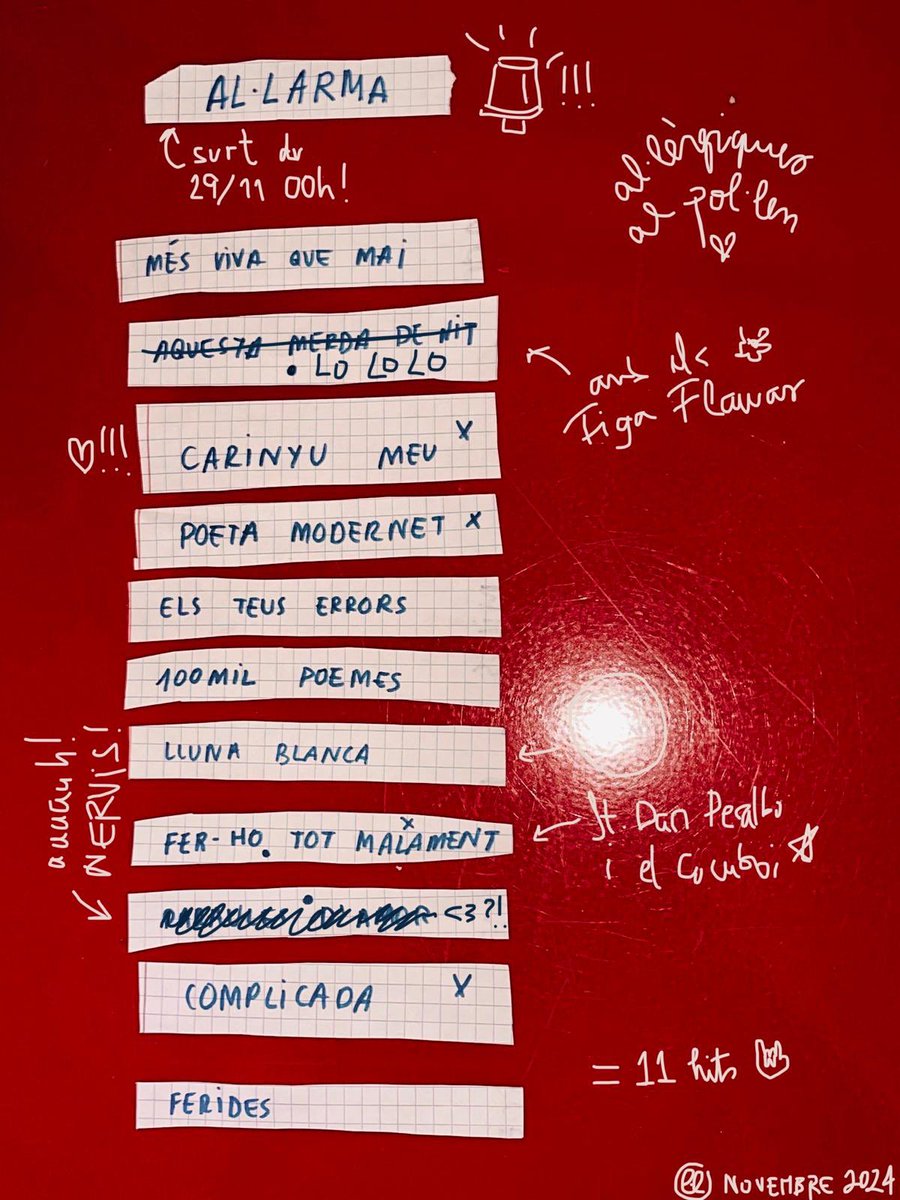 AL·LARMA
!!!
surt dv
29/11 00h!
al·lèrgiques
al pol·len
MÉS VIVA QUE MAI
AQUESTA MERDA DE NIT
• LO LO LO
amb els
Figa Flawas
!!!
CARINYU MEU X
POETA MODERNET X
ELS TEUS ERRORS
100MIL POEMES
LLUNA BLANCA
auuuh!
NERVIS!
FER-HO. TOT MALAMENT X
ft. Dan Peralbo
i el Comboi
<3?!
COMPLICADA X
= 11 hits
FERIDES
NOVEMBRE 2024